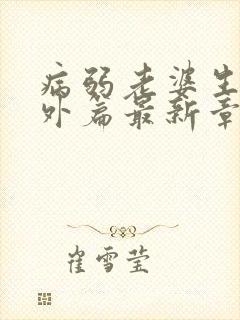 病弱老婆生
外篇最新章
崔雪莹